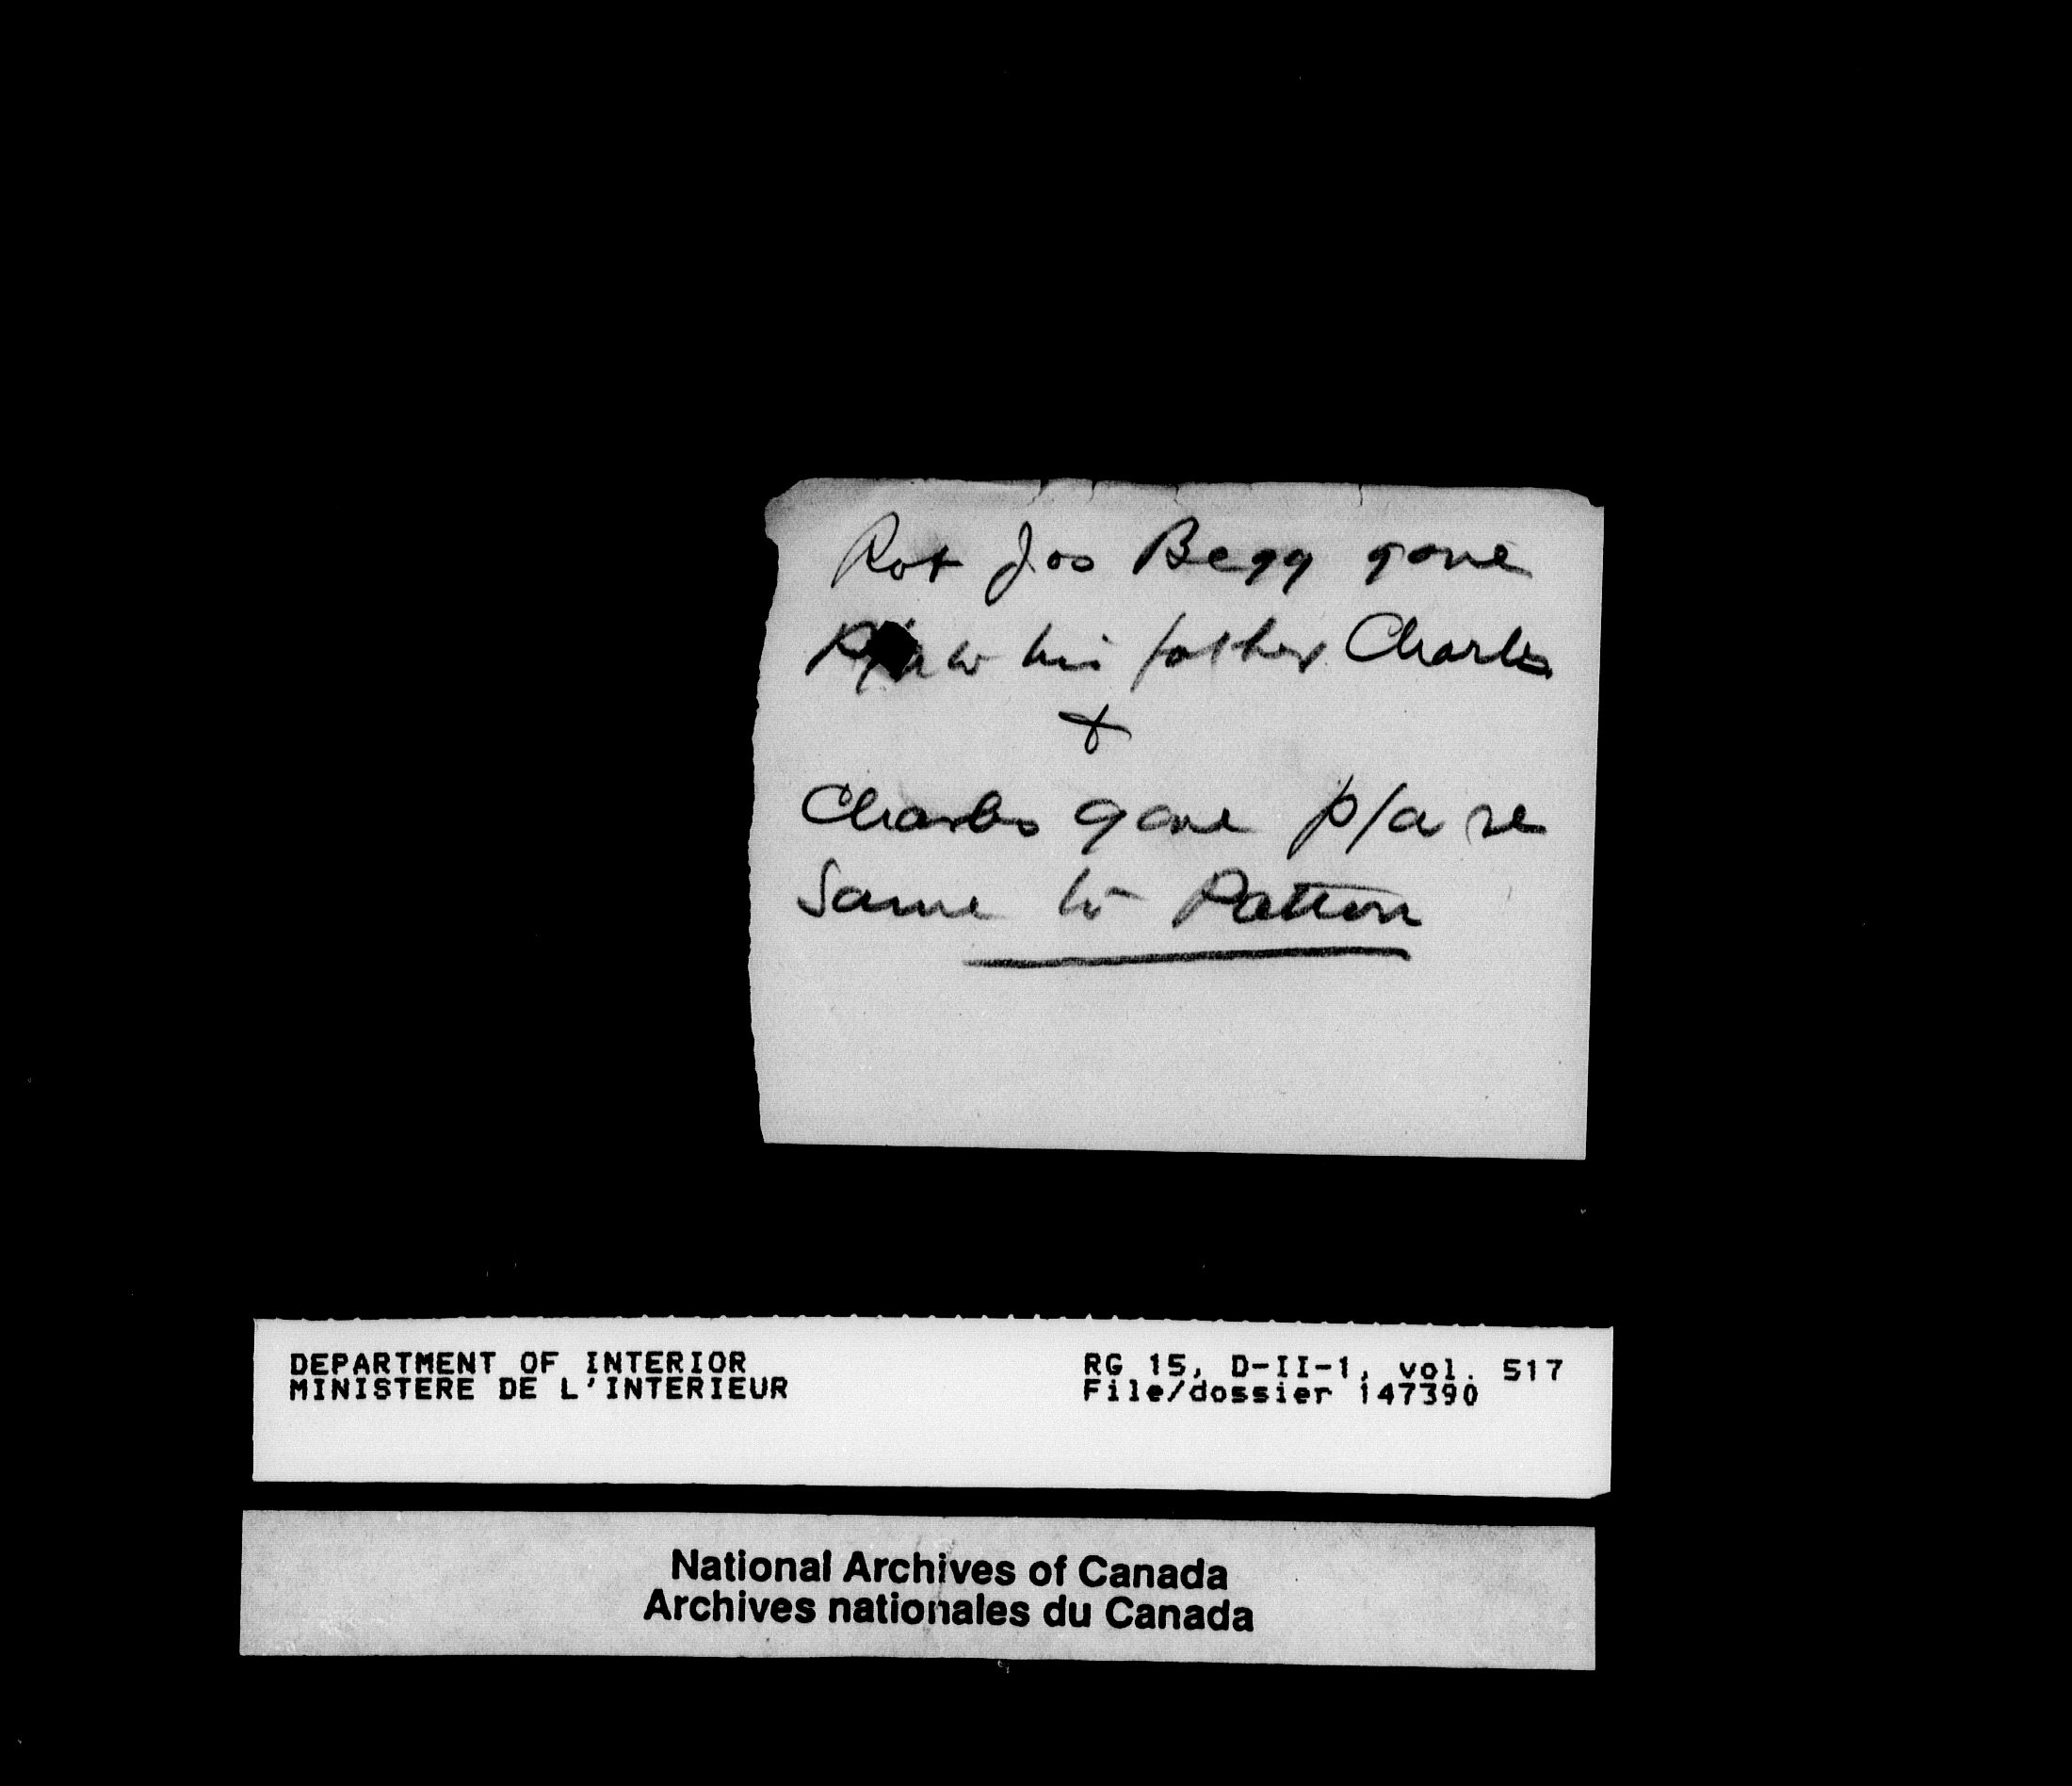 Rot Jos Begg gave
P/A to his father Charles
+
Charles gave p/a re
Same to Patton
DEPARTMENT OF INTERIOR
MINISTERE DE L'INTERIEUR
RG 15, D-II-1, vol. 517
File/dossier 147390
National Archives of Canada
Archives nationales du Canada